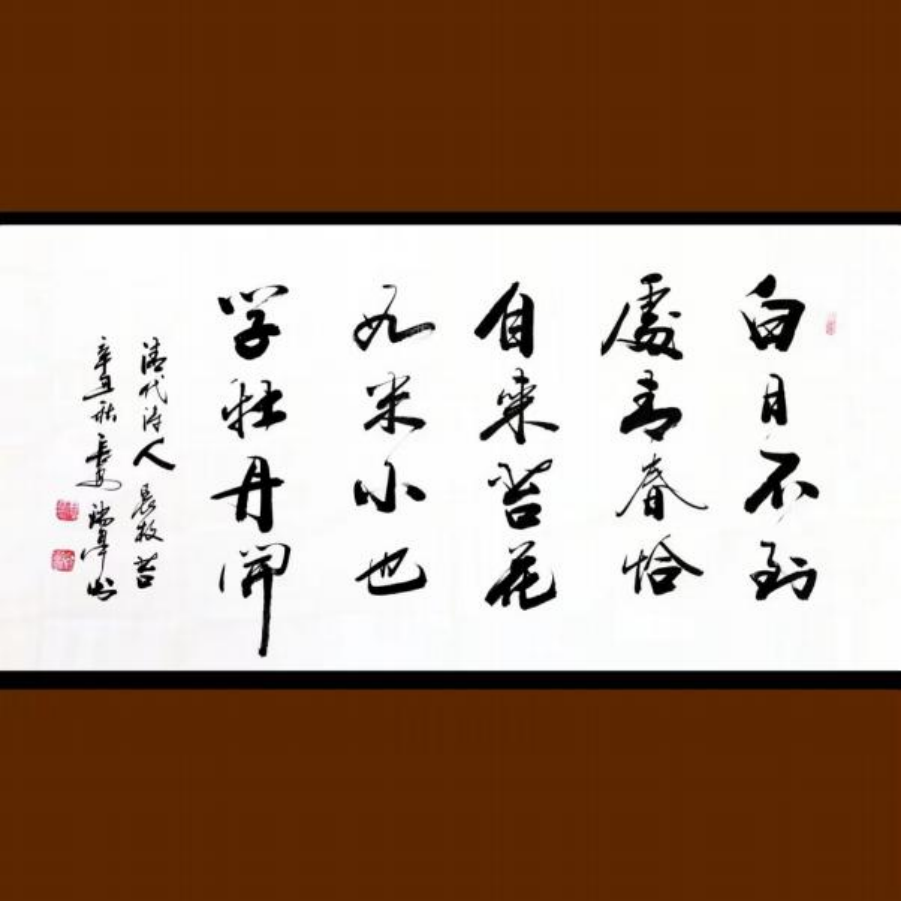 白日不到
處青春恰
自來苔花
如米小也
学牡丹開
清代诗人袁枚苔
辛丑秋長安